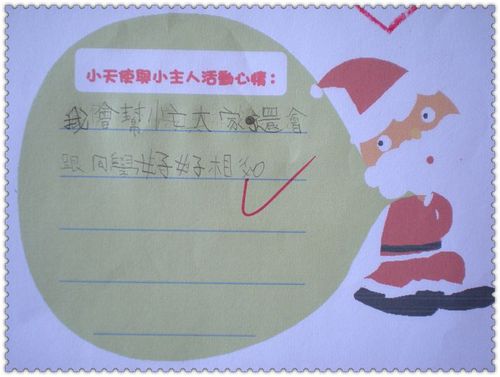 小天使與小主人活動心情：
我會幫小主大家還會
跟同學好好相処